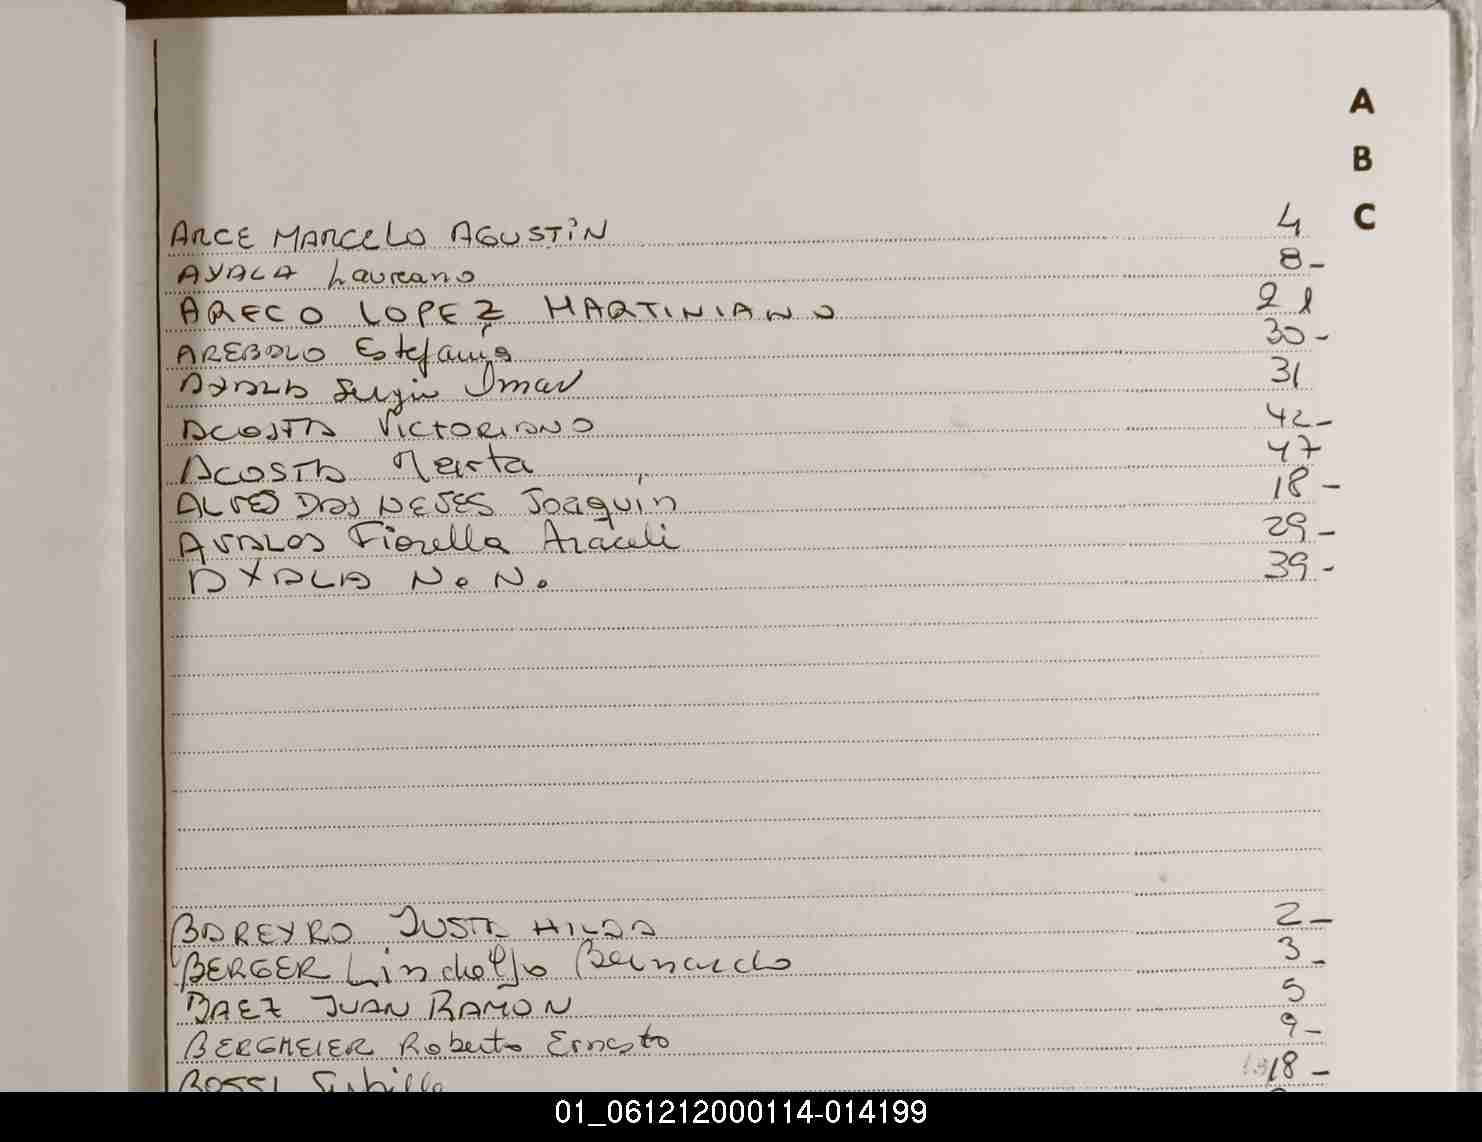 A
B
C
ARCE MARCELO AGUSTIN 4
AYALA Laureano 8-
ARECO LOPEZ MARTINIANO 21
AREBALO Estefania 30-
AYALA Sergio Omar 31
ACOSTA VICTORIANO 42-
ACOSTA Marta 47
ALVES DAS NEVES Joaquin 18-
AVALOS Fiorella Araceli 29-
AYALA N.N. 39-
BAREYRO JUSTA HILDA 2-
BERGER Bernardo 3-
BAEZ JUAN RAMON 5
BERGMEIER Roberto Ernesto 9-
BOSSI 18-
01_061212000114-014199